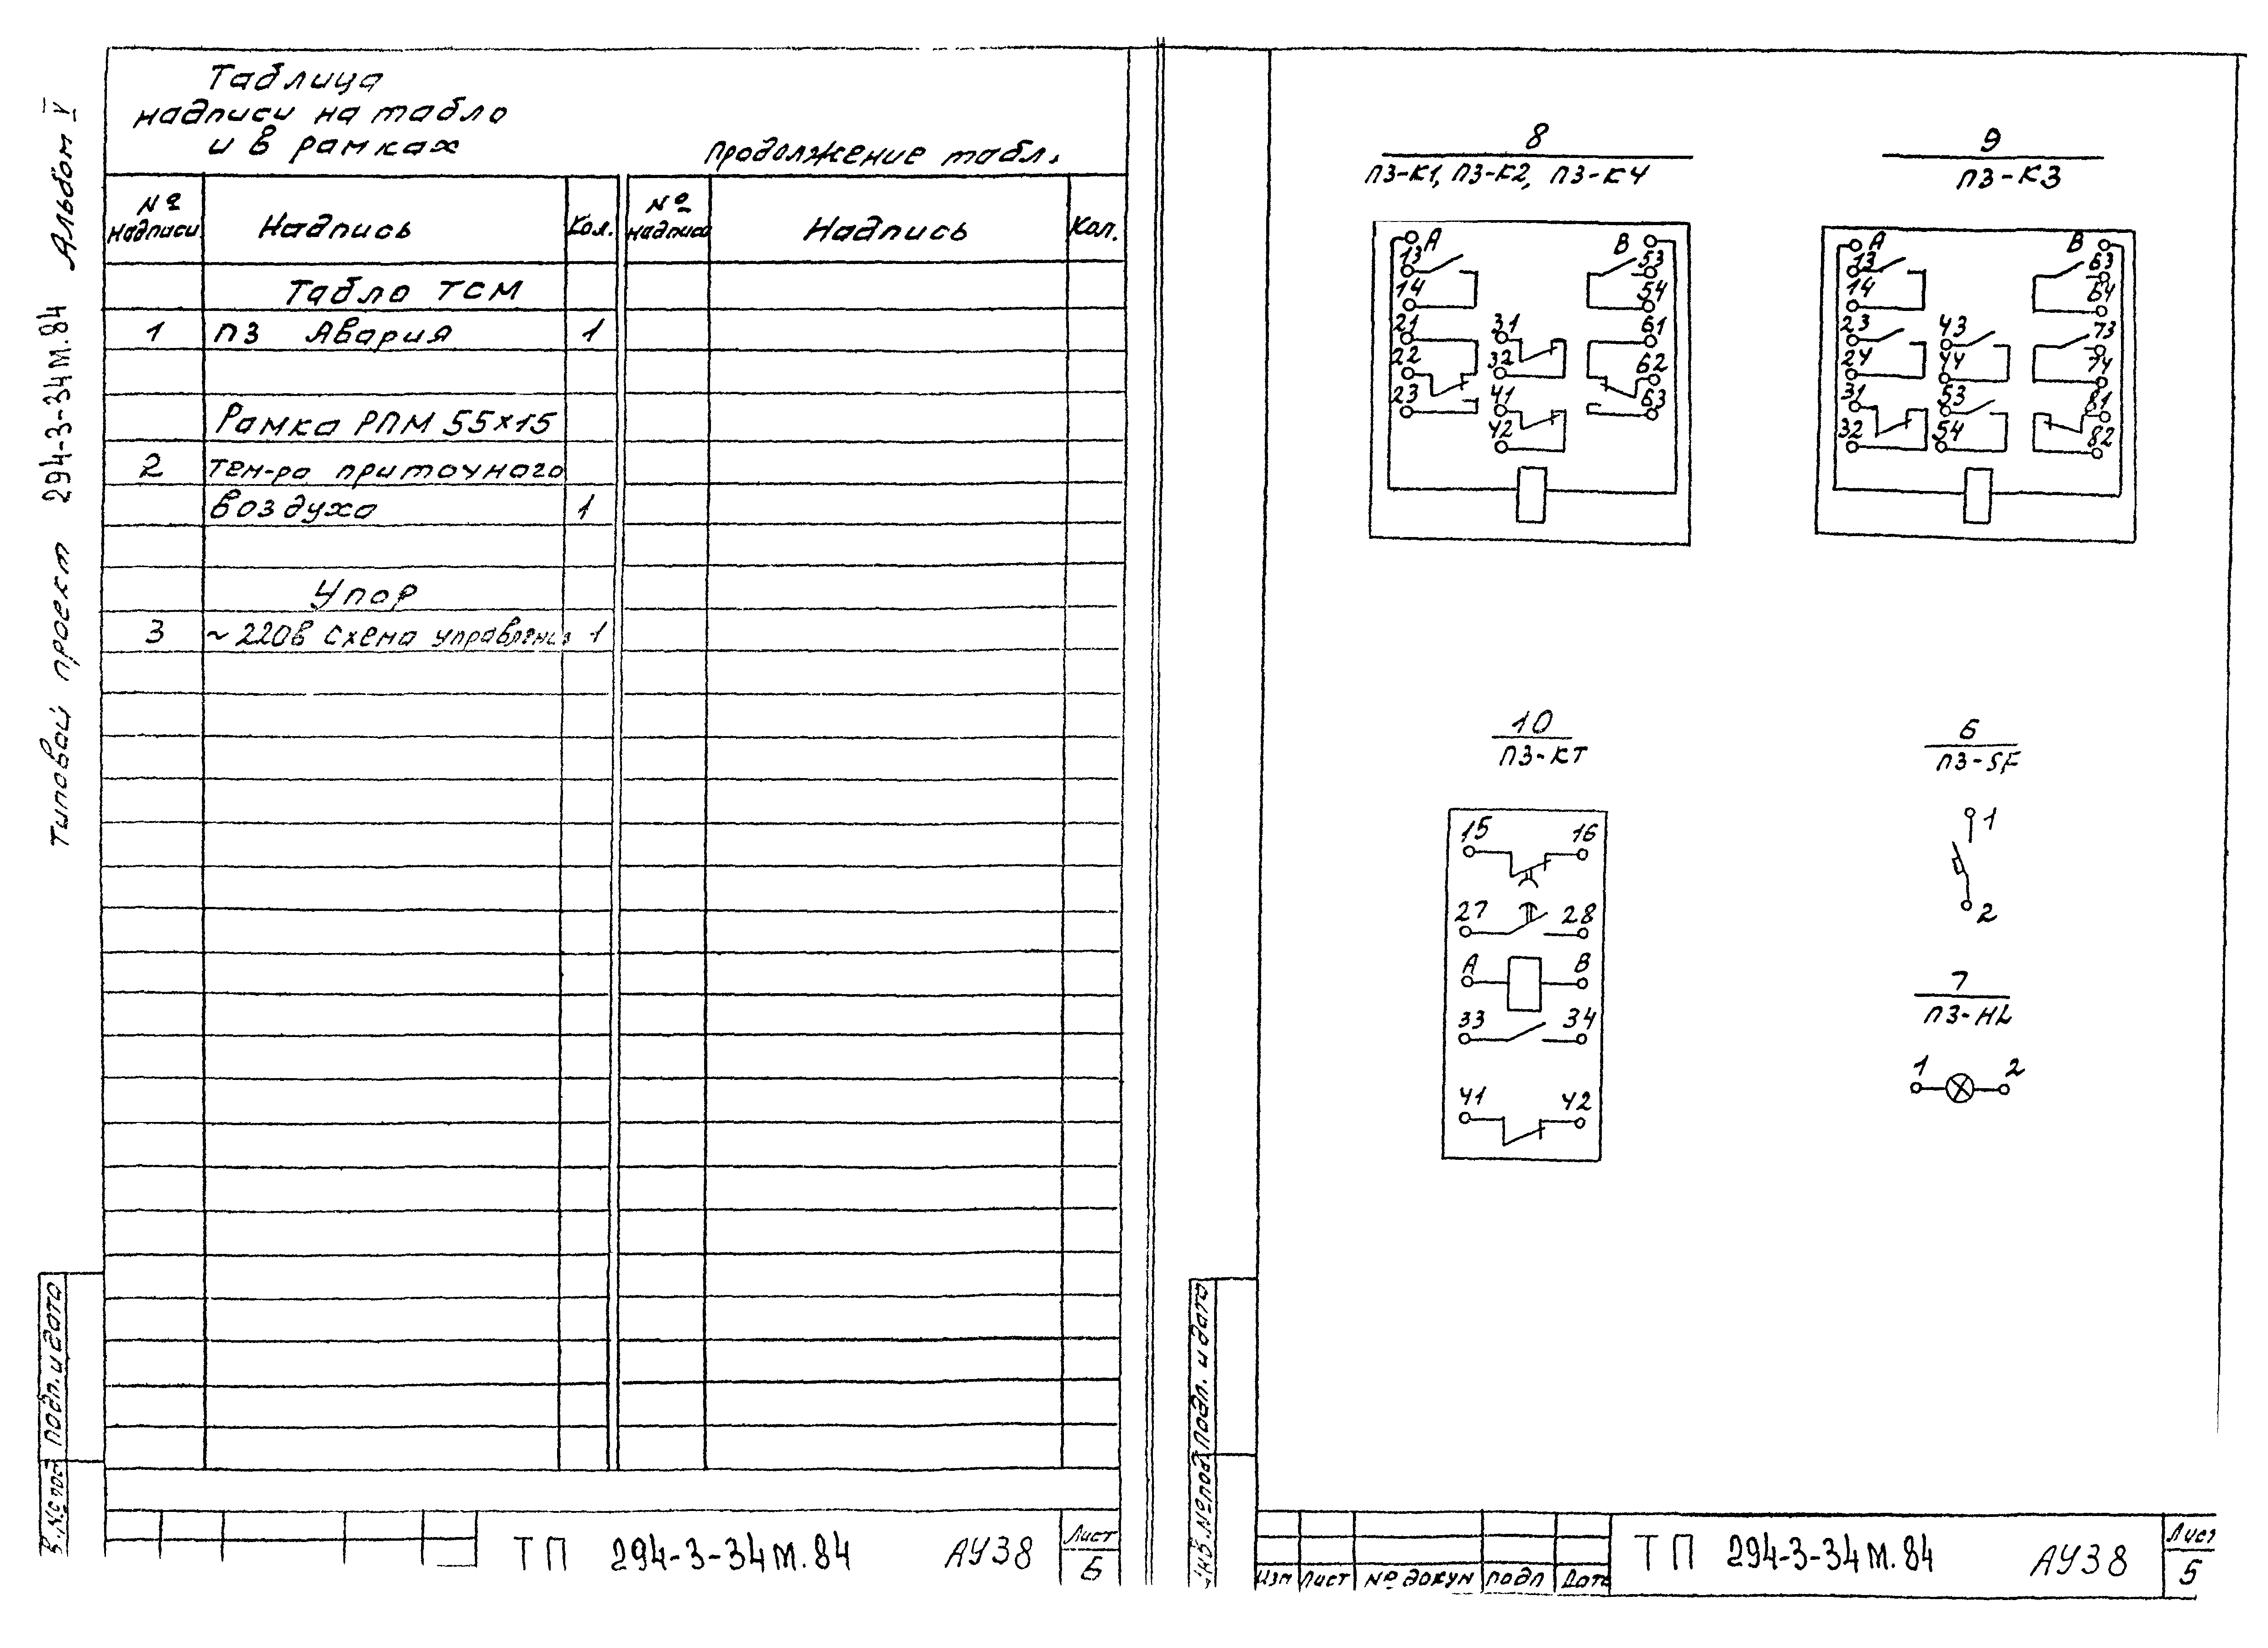 Типовой проект 294-3-34м.84 Альбом V
Таблица
надписи на табло
и в рамках
продолжение табл.
№ надписи Надпись Кол. № надписи Надпись Кол.
Табло ТСМ
1 П3 Авария 1
Рамка РПМ 55×15
2 тем-ра приточного
воздуха 1
Упор
3 ~220в схема управления 1
подп. и дата
ТП 294-3-34м.84 АУ38 Лист 6
8
П3-К1, П3-К2, П3-К4
А В
13 53
14 54
21 31 61
22 32 62
23 41 63
42
9
П3-К3
А В
13 63
14 64
23 43 73
24 44 74
31 53 81
32 54 82
10
П3-КТ
15 16
27 28
А В
33 34
41 42
6
П3-SF
1
2
7
П3-HL
1 2
Инв.№подл Подп. и дата
Изм Лист № докум подп Дата
ТП 294-3-34м.84 АУ38 Лист 5